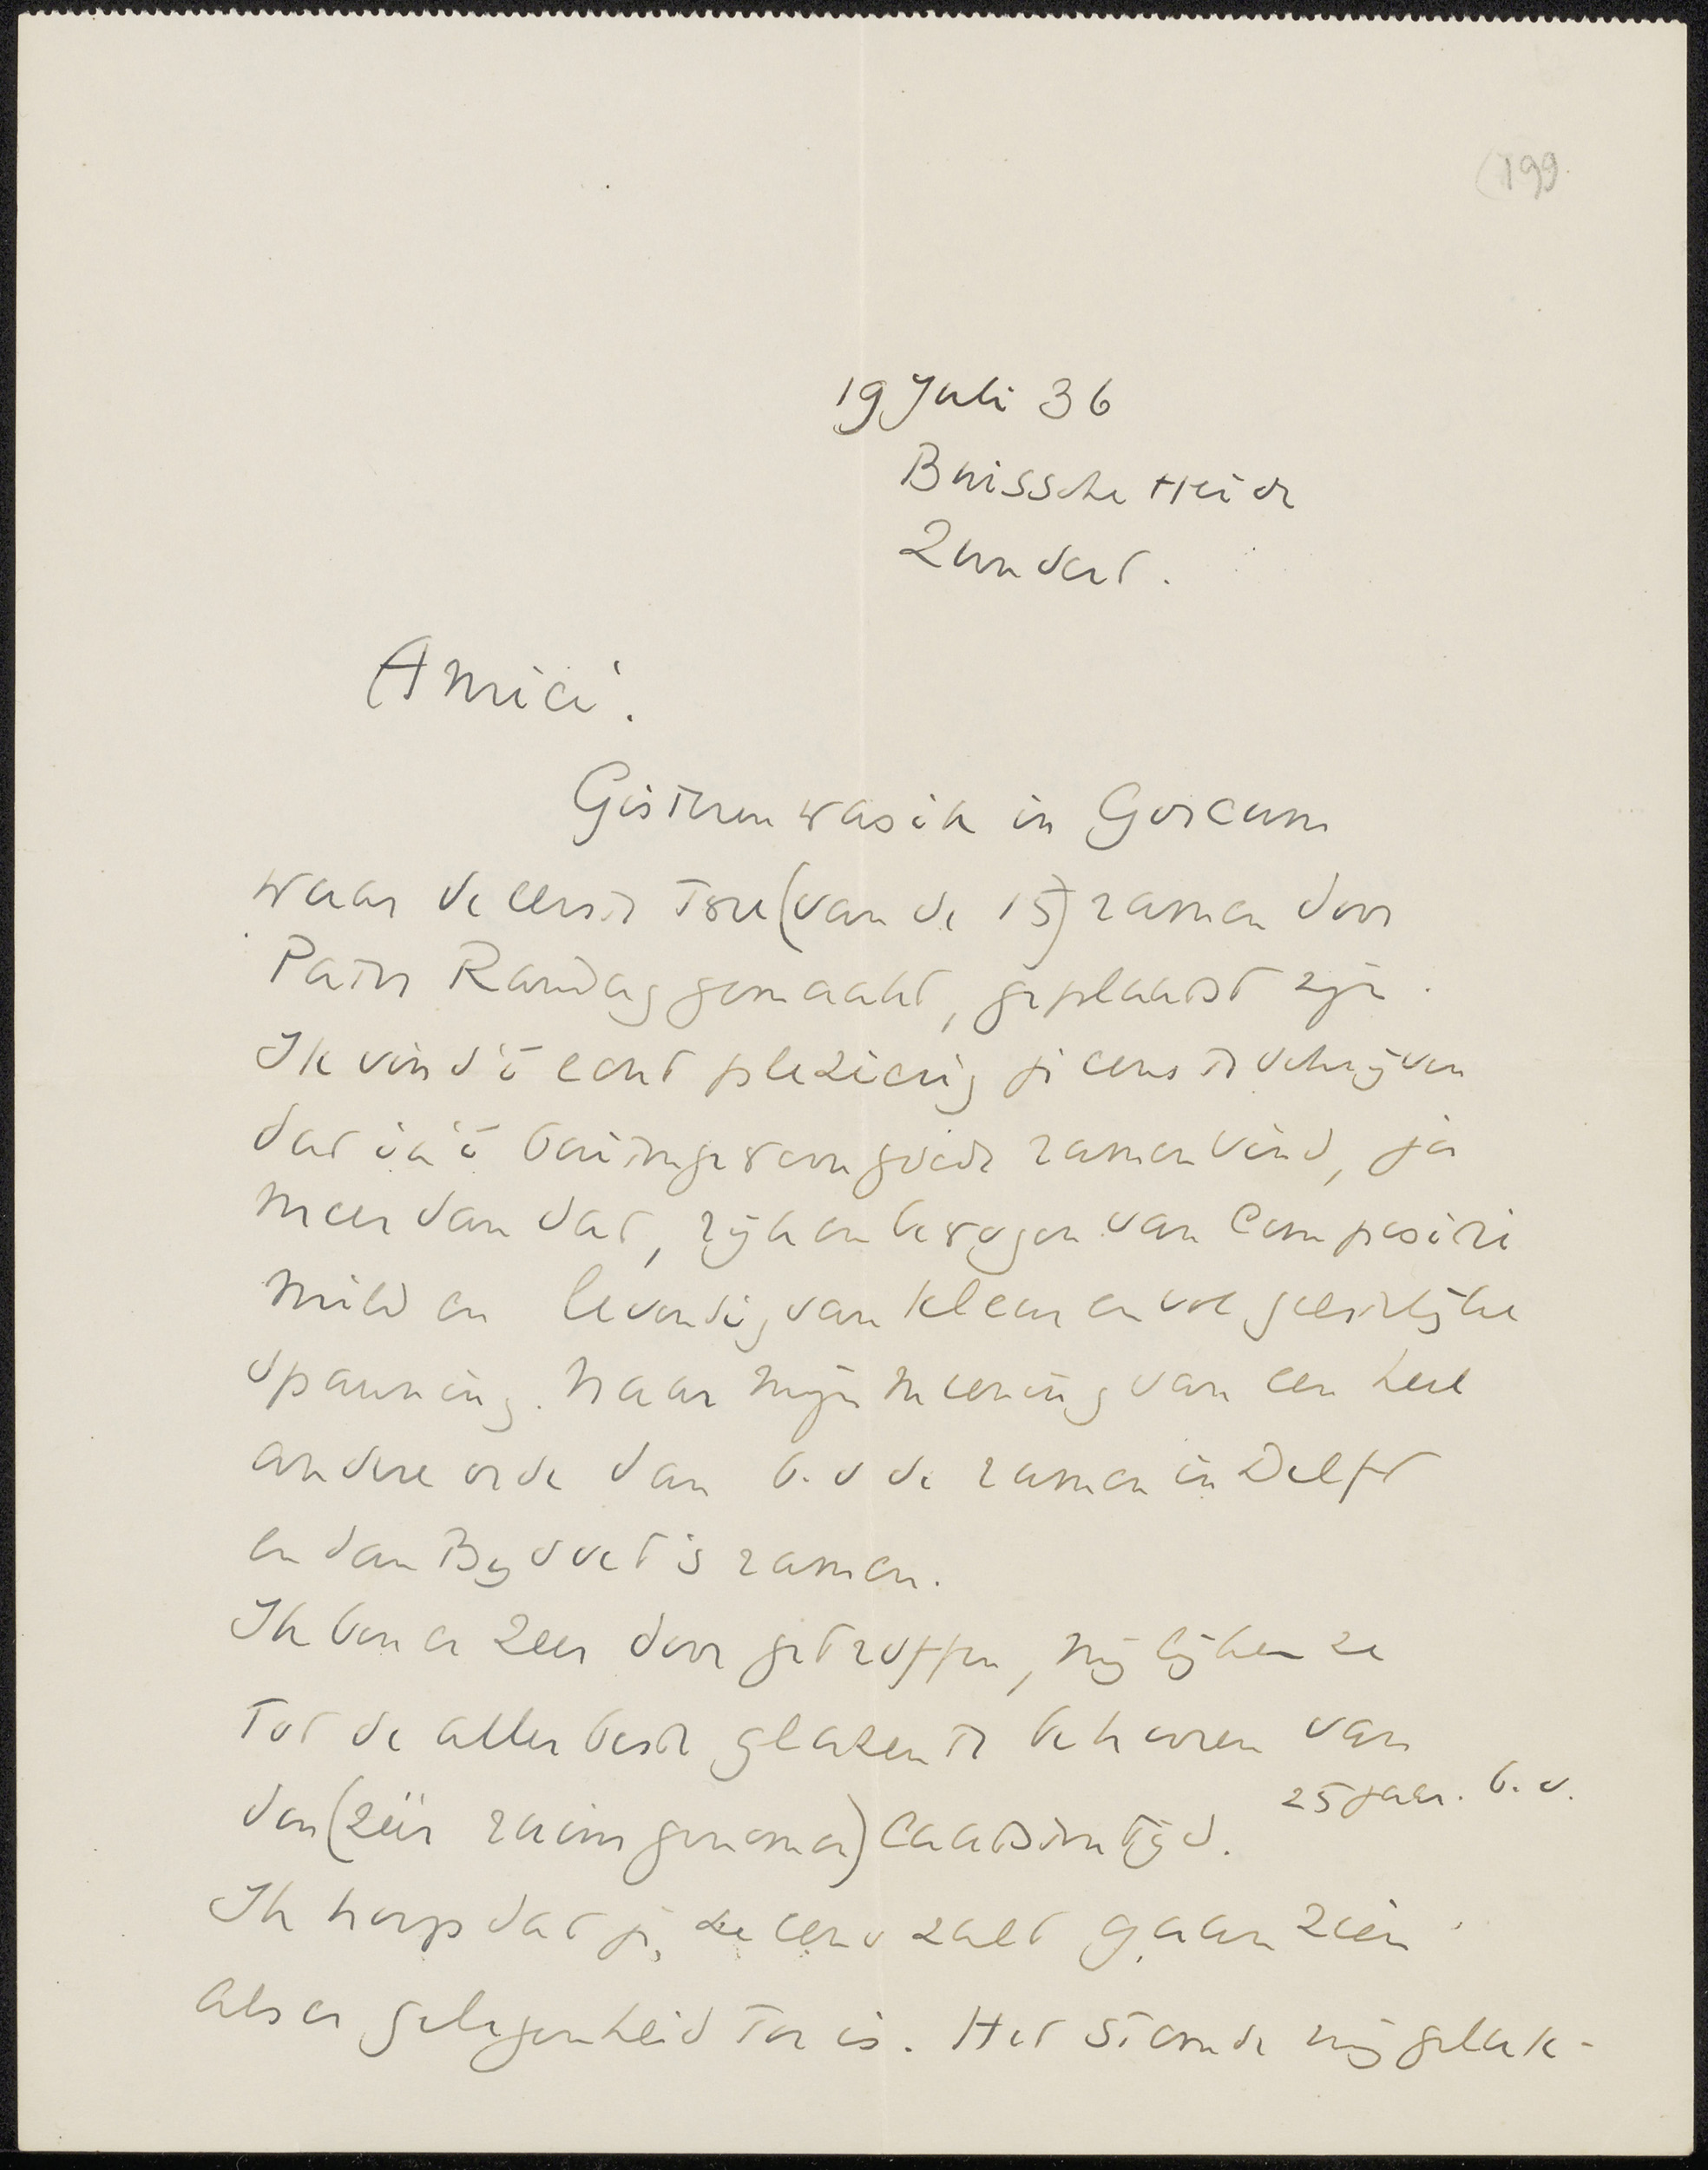 (199.
19 Juli 36
Buissche Heide
Zundert.
Amici.
Gisteren was ik in Gorcum
waar de eerste twee (van de 15) ramen door
Pater Randag gemaakt, geplaatst zijn.
Ik vind 't echt plezierig je eens te schrijven
dat ik 't buitengewoon goede ramen vind, ja
meer dan dat, rijk en bewogen van compositie
mild en levendig van kleur en vol geestelijke
spanning. Naar mijn meening van een heel
andere orde dan b.v de ramen in Delft
en dan Bijvoet's ramen.
Ik ben er zeer door getroffen, mij lijken ze
tot de allerbeste glazen te behooren van
den (zéér ruim genomen) laatsten tijd. 25 jaar. b.v.
Ik hoop dat je ze eens zult gaan zien
als er gelegenheid toe is. Het stemde mij geluk-